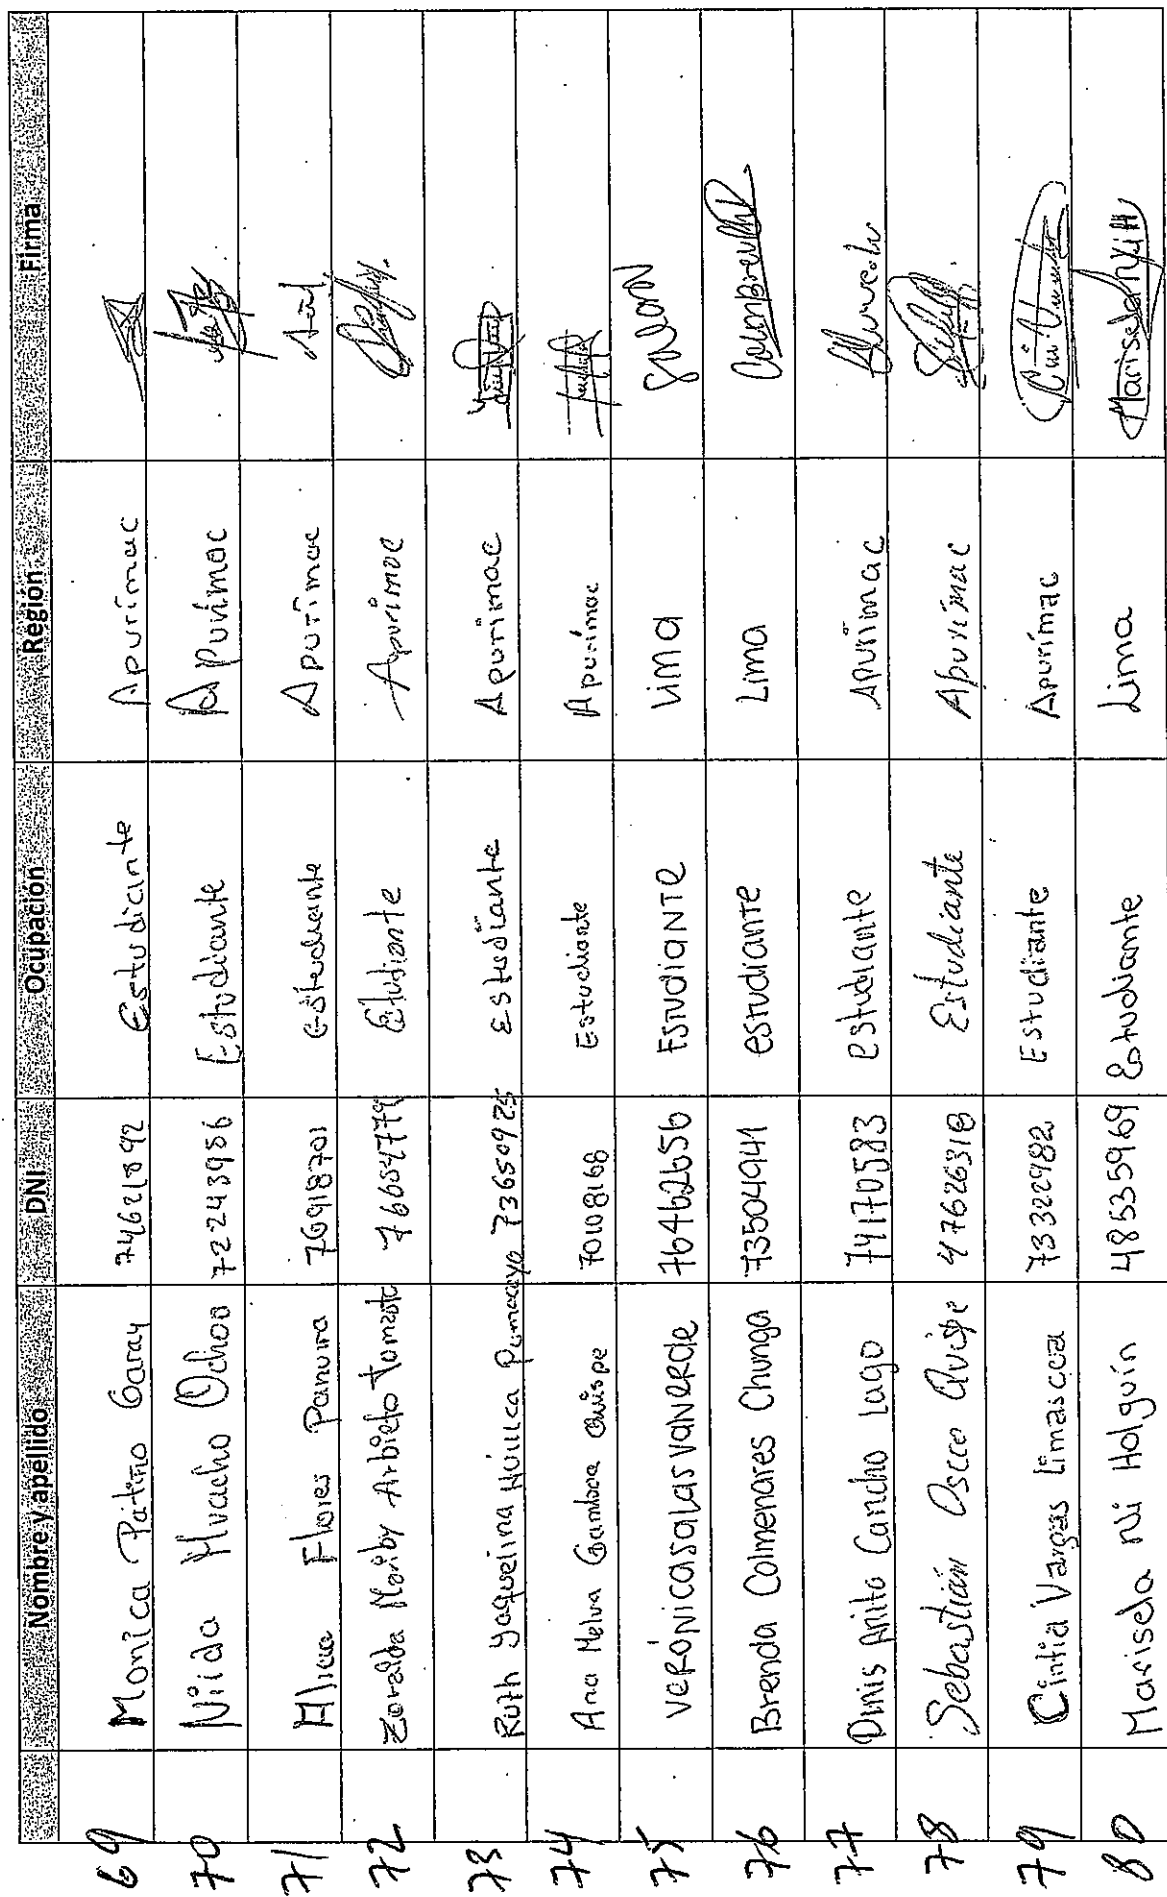 Nombre y apellido DNI Ocupación Región Firma
69 Monica Patiño Garay 74621892 Estudiante Apurímac
70 Nilda Huacho Ochoa 72243986 Estudiante Apurímac
71 Flores 76918701 estudiante Apurímac
72 Arbieto 7665477 Estudiante Apurimac
73 Ruth Yaquelina Huillca Pumacayo 73650925 Estudiante Apurimac
74 Ana Melva Gamboa Quispe 70108168 Estudiante Apurímac
75 VERONICA SALAS VALVERDE 76462656 ESTUDIANTE Lima
76 Brenda Colmenares Chunga 73504941 estudiante Lima
77 Anita Cancho Lago 74170583 estudiante Apurimac
78 Sebastián Oscco Quispe 47626318 Estudiante Apurímac
79 Cintia Vargas Limascca 73322982 Estudiante Apurímac
80 Marisela Ñi Holguín 48535969 Estudiante Lima